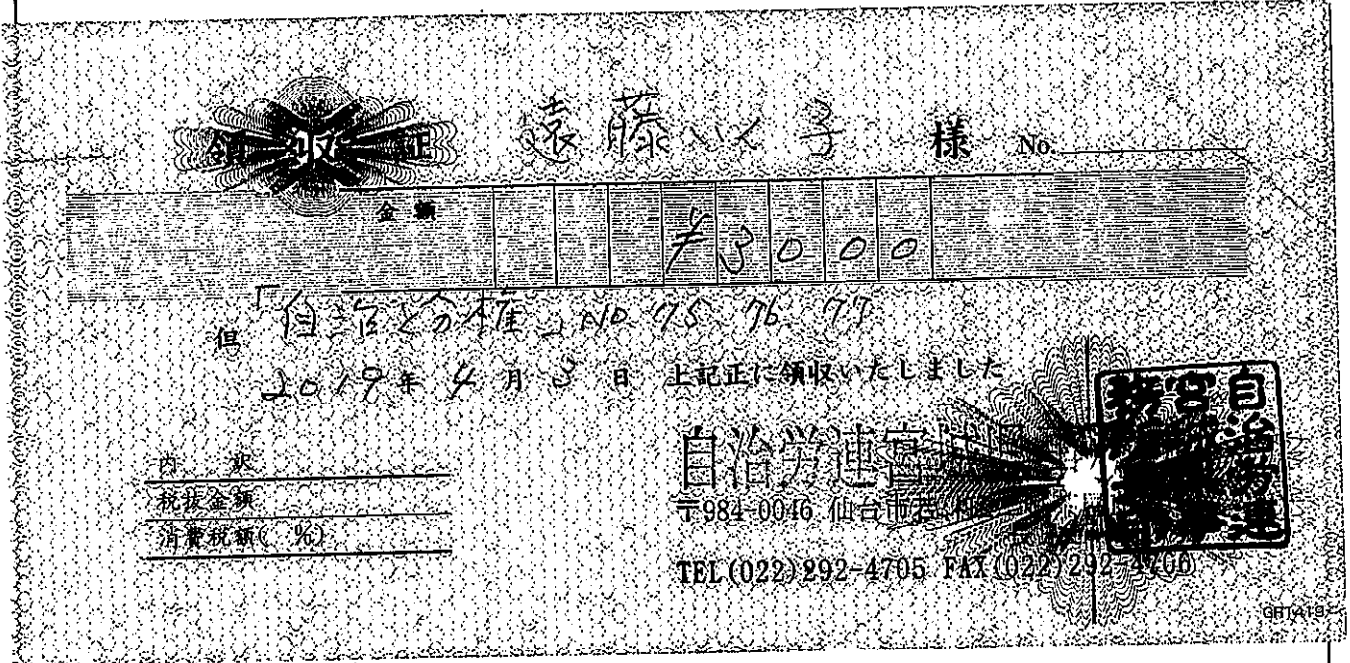 領収証 遠藤いく子 様 No.
金額 ¥3000
但 「自治と分権」No 75、76、77
2019年4月3日 上記正に領収いたしました
内 訳
税抜金額
消費税額( %)
自治労連宮城県
〒984-0046 仙台市若林区
TEL(022)292-4705 FAX(022)292-4706
自治労連宮城県
GR1419